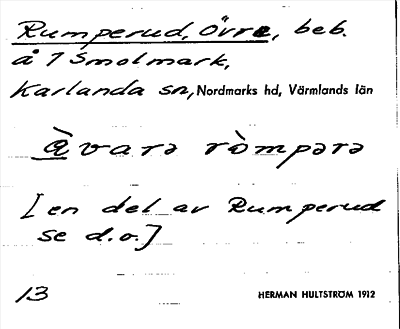 Rumperud, Övre, beb.
å 1 Smolmark,
Karlanda sn, Nordmarks hd, Värmlands län
Àvarə ròmpərə
[en del av Rumperud
se d.o.]
13 HERMAN HULTSTRÖM 1912